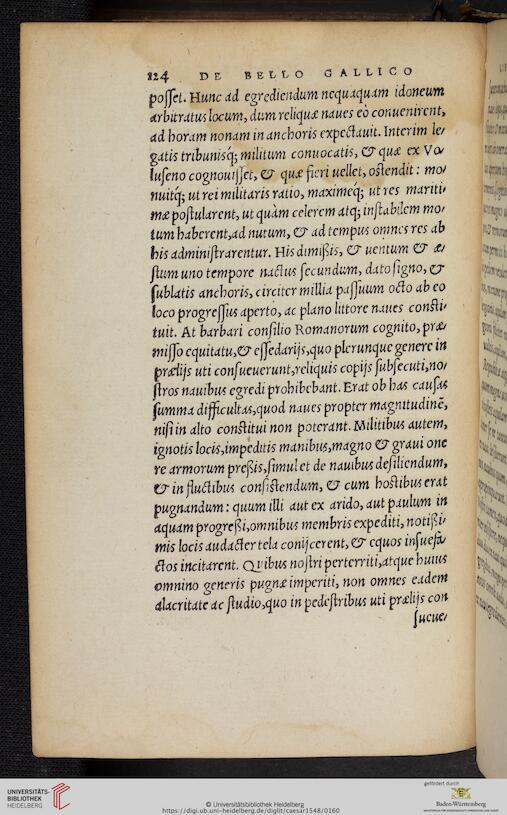 124 DE BELLO GALLICO
posſet. Hunc ad egrediendum nequaquam idoneum
arbitratus locum, dum reliquæ naues eò conuenirent,
ad horam nonam in anchoris expectauit. Interim le/
gatis tribunisq́; militum conuocatis, & quæ ex Vo/
luſeno cognouiſſet, & quæ fieri uellet, oſtendit : mo/
nuitq́; ut rei militaris ratio, maximeq́; ut res mariti/
mæ poſtularent, ut quàm celerem atq; inſtabilem mo/
tum haberent,ad nutum, & ad tempus omnes res ab
his adminiſtrarentur. His dimißis, & uentum & æ/
ſtum uno tempore nactus ſecundum, dato ſigno, &
ſublatis anchoris, circiter millia paſſuum octo ab eo
loco progreſſus aperto, ac plano littore naues conſti/
tuit. At barbari conſilio Romanorum cognito, præ/
miſſo equitatu,& eſſedarijs,quo plerunque genere in
prælijs uti conſueuerunt,reliquis copijs ſubſecuti,no/
ſtros nauibus egredi prohibebant. Erat ob has cauſas
ſumma difficultas,quod naues propter magnitudinẽ,
niſi in alto conſtitui non poterant. Militibus autem,
ignotis locis,impeditis manibus,magno & graui one
re armorum preßis,ſimul et de nauibus deſiliendum,
& in fluctibus conſiſtendum, & cum hoſtibus erat
pugnandum : quum illi aut ex arido, aut paulum in
aquam progreßi,omnibus membris expediti, notißi/
mis locis audacter tela conijcerent, & equos inſuefa/
ctos incitarent. Quibus noſtri perterriti,atque huius
omnino generis pugnæ imperiti, non omnes eadem
alacritate ac ſtudio,quo in pedeſtribus uti prælijs con
ſueue/
UNIVERSITÄTS-
BIBLIOTHEK
HEIDELBERG
© Universitätsbibliothek Heidelberg
https://digi.ub.uni-heidelberg.de/diglit/caesar1548/0160
gefördert durch
Baden-Württemberg